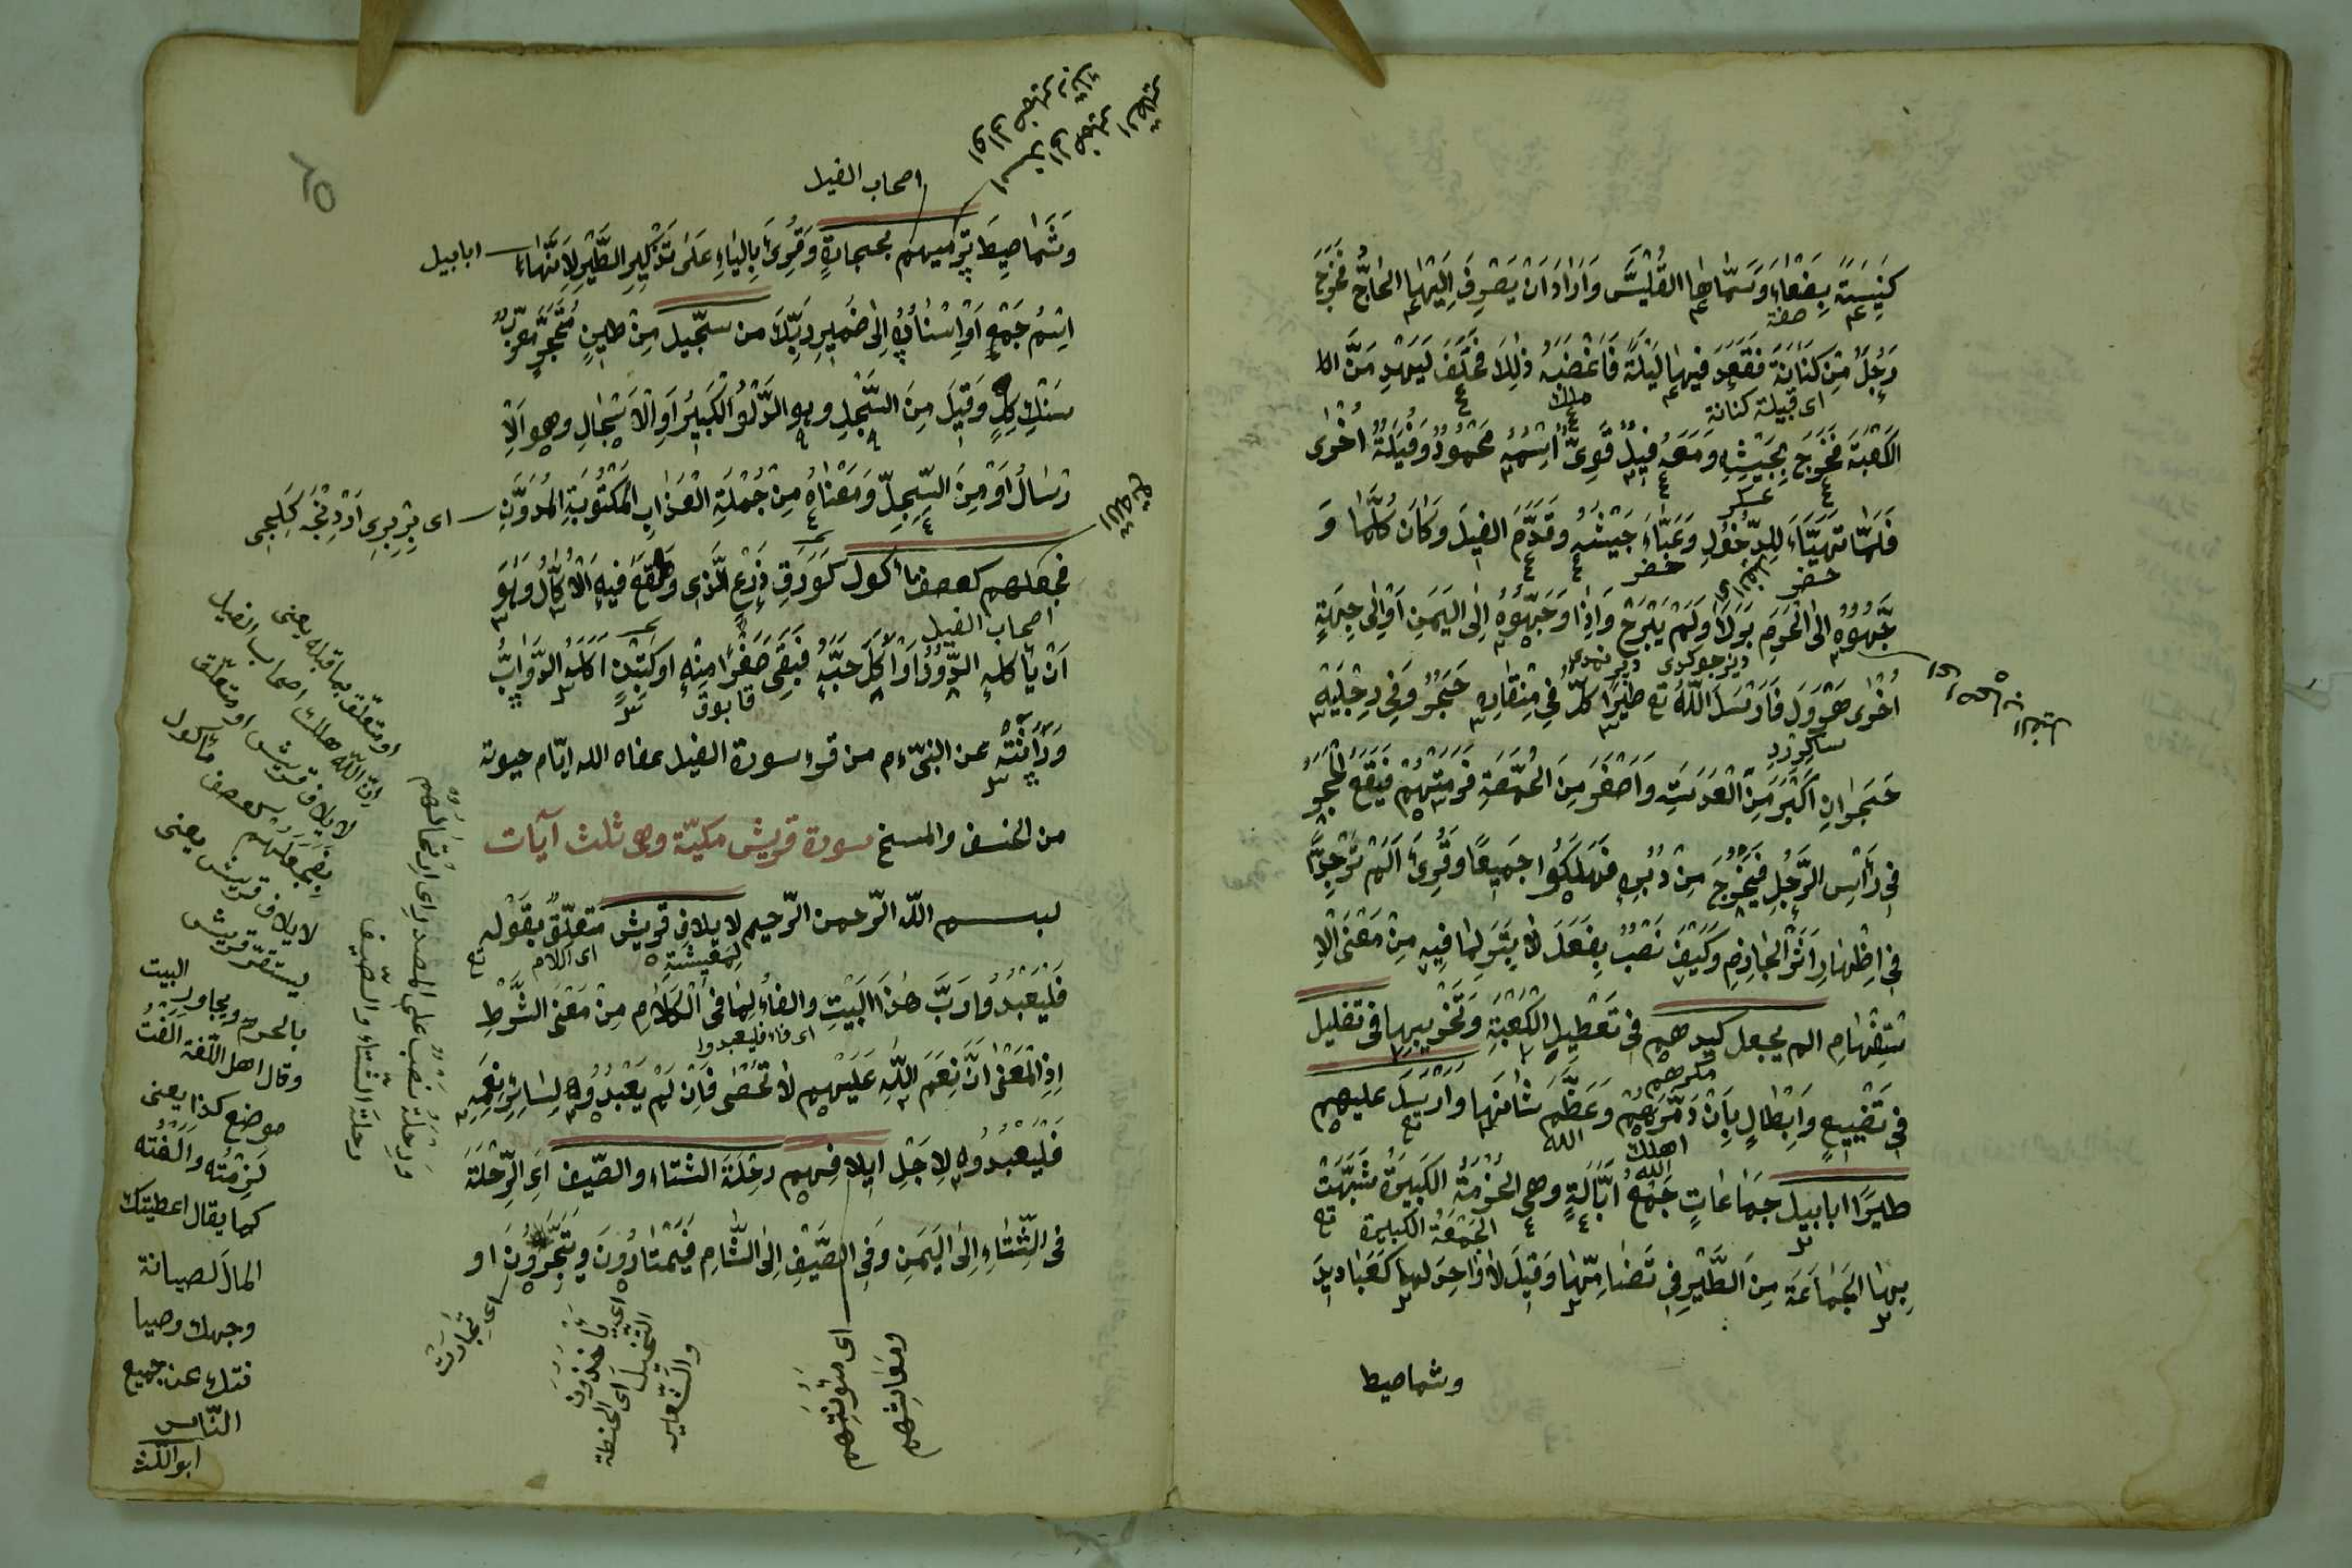 كَنِيسَةً بِصَنْعَاءَ وَسَمَّاهَا الْقُلَّيْسَ وَاَرَادَ اَنْ يَصْرِفَ اِلَيْهَا الْحَاجَّ فَخَرَجَ
صفة
رَجُلٌ مِنْ كَنَانَةَ فَقَعَدَ فِيهَا لَيْلَةً فَاَغْضَبَهُ ذٰلِكَ فَحَلَفَ لَيَهْدِمَنَّ الْ
اى قبيلة كنانة
ملك
الْكَعْبَةَ فَخَرَجَ بِجَيْشِهِ وَمَعَهُ فِيلٌ قَوِىٌّ اِسْمُهُ مَحْمُودٌ وَفِيَلَةٌ اُخْرٰى
عسكر
فَلَمَّا تَهَيَّاءَ لِلدُّخُولِ وَعَبَّاءَ جَيْشَهُ وَقَدَّمَ الفِيلَ وَكَانَ كُلَّمَا وَ
حضر
حضر
جَّهُوهُ اِلَى الْحَرَمِ بَرَكَ وَلَمْ يَبْرَحْ وَاِذَا وَجَّهُوهُ اِلَى الْيَمَنِ اَوْ اِلٰى جِهَةٍ
اُخْرٰى هَرْوَلَ فَاَرْسَلَ اللّٰهُ تع طَيْرًا كُلٌّ فِى مِنْقَارِهِ حَجَرٌ وَفِى رِجْلَيْهِ
حَجَرَانِ اَكْبَرُ مِنَ الْعَدَسَةِ وَاَصْغَرُ مِنَ الْحُمَّصَةِ فَرَمَتْهُمْ فَيَقَعُ الْحَجَرُ
فِى رَاْسِ الرَّجُلِ فَيَخْرُجُ مِنْ دُبُرِهِ فَهَلَكُوا جَمِيعًا وَقُرِئَ اَلَمْ تَرْ جِدًّا
فِى اِظْهَارِ اَثَرِ الْجَازِمِ وَكَيْفَ نَصْبٌ بِفَعَلَ لَا بِتَرَ لِمَا فِيهِ مِنْ مَعْنَى الْاِ
سْتِفْهَامِ الم يجعل كيدهم فِى تَعْطِيلِ الْكَعْبَةِ وَتَخْرِيبِهَا فى تضليل
مكرهم
فِى تَضْيِيعٍ وَاِبْطَالٍ بِاَنْ دَمَّرَهُمْ وَعَظَّمَ شَاْنَهَا وَاَرْسَلَ عليهم
اهلك الله
الله تع
طيرًا ابابيل جَمَاعَاتٍ جَمْعُ اِبَّالَةٍ وهى الْحُزْمَةُ الْكَبِيرَةُ شُبِّهَتْ
الجمعة الكبيرة
بِهَا الْجَمَاعَةُ مِنَ الطَّيْرِ فِى تَضَامِّهَا وَقِيلَ لَا وَاحِدَ لها كَعَبَادِيدَ
وشماطيط
اصحاب الفيل
وَشَمَاطِيطَ تَرْمِيهِم بحجارةٍ وَقُرِئَ بِالْيَاءِ عَلٰى تَذْكِيرِ الطَّيْرِ لِاَنَّهَا
ابابيل
اِسْمُ جَمْعٍ اَوْ اِسْنَادُهُ اِلٰى ضَمِيرِ رَبِّكَ من سجّيل مِنْ طِينٍ مُتَحَجِّرٍ مُعَرَّبُ
سَنْكِ كِلْ وَقِيلَ مِنَ السَّجْلِ وهو الدَّلْوُ الْكَبِيرُ اَوِ الْاِسْجَالِ وهو الْاِ
رْسَالُ اَوْ مِنَ السِّجِلِّ وَمَعْنَاهُ مِنْ جُمْلَةِ الْعَذَابِ الْمَكْتُوبَةِ الْمُدَوَّنِ
فجعلهم كعصف ماْكول كَوَرَقِ زَرْعٍ الَّذِى وَقَعَ فِيهِ الْاُكَالُ وَهُوَ
اصحاب الفيل
اَنْ يَأكله الدُّودُ اَوْ اُكِلَ حَبُّهُ فَبَقِىَ صَفْرًا مِنْهِ اَوْ كَتِبْنٍ اَكَلَهُ الدَّوَابُّ
قابوق
وَرَاثَتْهُ عن النبىّ ءم من قرء سورة الفيل عفاه الله ايّام حيوته
من الخسف والمسخ سورة قريش مكيّة وهى ثلث آيات
بسم اللّٰه الرّحمن الرّحيم لايلاف قريش مُتَعَلِّقٌ بِقَوْلِهِ
تع
اى اللام
فَلْيَعْبُدُوا رَبَّ هٰذَا الْبَيْتِ والفاءُ لِمَا فى الْكَلَامِ مِنْ مَعْنَى الشَّرْطِ
اى فاء فليعبدوا
اِذِ الْمَعْنٰى اَنَّ نِعَمَ اللّٰهِ عَلَيْهِم لَا تُحْصٰى فَاِنْ لَمْ يَعْبُدُوهُ لِسَائِرِ نِعَمِهِ
فَلْيَعْبُدُوهُ لِاَجْلِ ايلافهم رحْلَةَ الشتاء والصّيف اَىِ الرِّحْلَةَ
فى الشِّتَاءِ اِلَى الْيَمَنِ وَفِى الصَّيْفِ اِلَى الشَّامِ فَيَمْتَارُونَ وَيَتَّجِرُونَ او
اى تجارت
اى ياخذون
النخيل اى الحنطة
والشعير
اى مئونتهم
ومعايشهم
او متعلّق بما قبله يعنى
انّ اللّٰه هلك اصحاب الفيل
لايلاف قريش او متعلّق
بفجعلهم كعصف ماْكول
لايلاف قريش يعنى
يستقرّ قريش
بالحرم ويجاور البيت
وقال اهل اللّغة الفت
موضع كذا يعنى
لزمْتُه وآلفْتُه
كما يقال اعطيتك
المال لصيانة
وجهك وصيا
نتك عن جميع
النّاس
ابو الليث
ورحلة نصب على المصدر اى ارتحالهم
رحلة الشّتاء والصّيف
٢٥